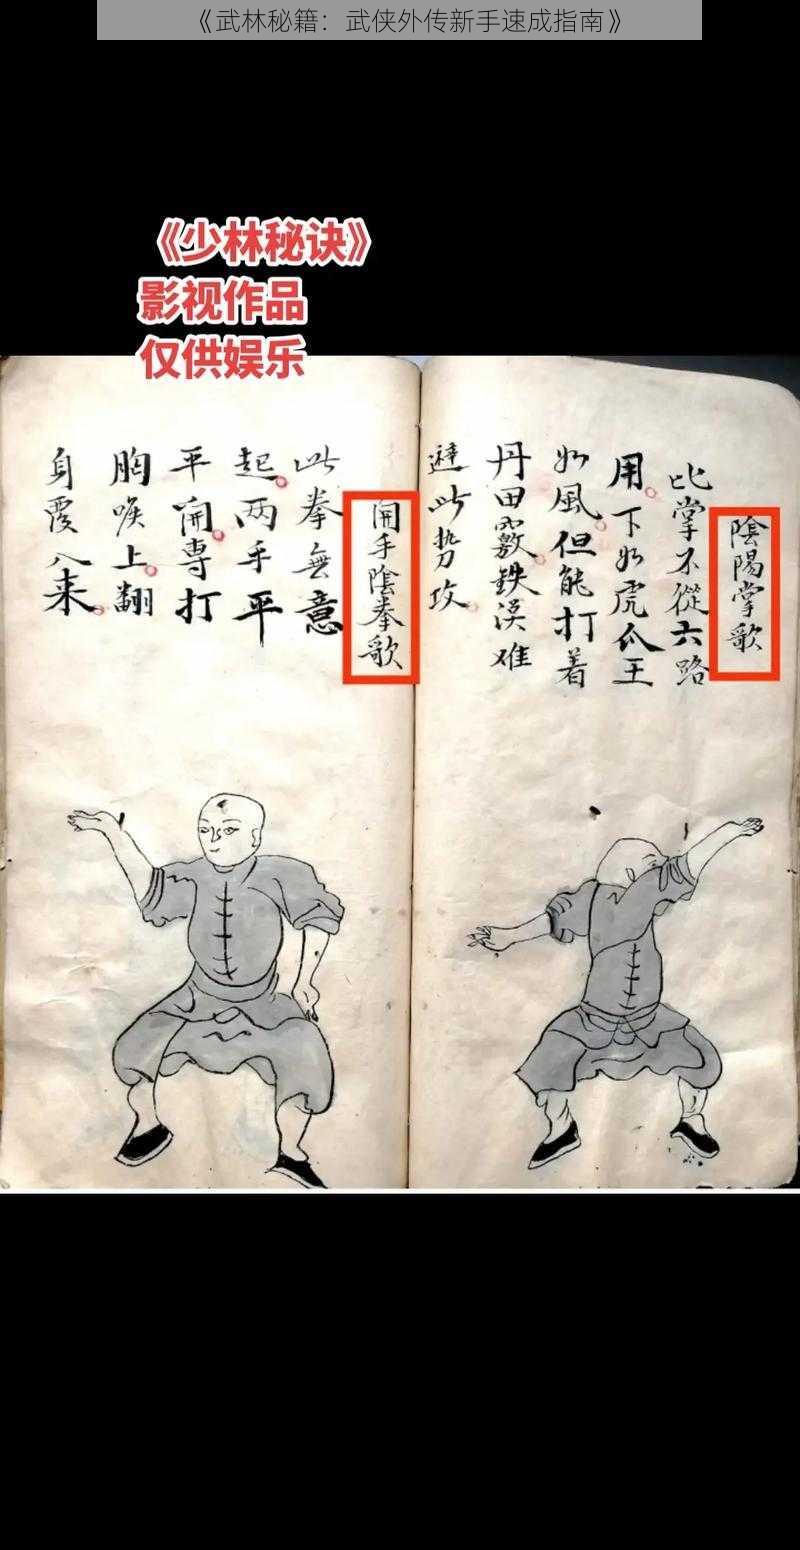 《武林秘籍：武侠外传新手速成指南》
《少林秘诀》
影视作品
仅供娱乐
陰陽掌歌
此掌不從六路
用下如虎爪王
如風但能打着
丹田竅鉄漢难
避此势攻
開手陰拳歌
此拳無意
起两手平
平開專打
胸喉上翻
身覆入来